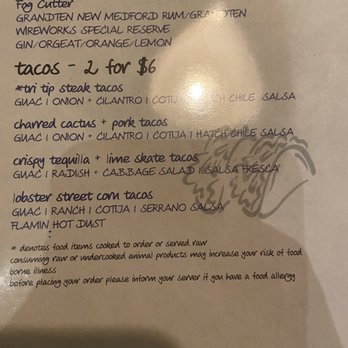 Fog Cutter
GRANDTEN NEW MEDFORD RUM/GRANDTEN
WIREWORKS SPECIAL RESERVE
GIN/ORGEAT/ORANGE/LEMON
tacos - 2 for $6
*tri tip steak tacos
GUAC | ONION + CILANTRO | COTIJA | HATCH CHILE SALSA
charred cactus + pork tacos
GUAC | ONION + CILANTRO | COTIJA | HATCH CHILE SALSA
crispy tequila + lime skate tacos
GUAC | RADISH + CABBAGE SALAD | SALSA FRESCA
lobster street corn tacos
GUAC | RANCH | COTIJA | SERRANO SALSA
FLAMIN HOT DUST
* denotes food items cooked to order or served raw
consuming raw or undercooked animal products may increase your risk of food
borne illness
before placing your order please inform your server if you have a food allergy